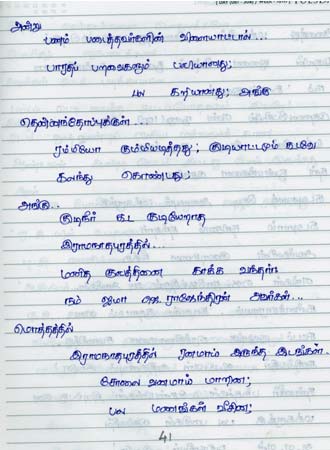 அன்று
பணம் படைத்தவர்களின் விளையாட்டால்...
பாரதப் பறவைகளும் பலியானது;
பல கரியானது; அங்கு
தென்னந்தோப்புக்குள்...
ரம்மியோ கும்மியடித்தது; குடியாட்டமும்
கலந்து கொண்டது;
அங்கு..
குடிநீர் கூட குடியேறாத
இராமநாதபுரத்தில்...
மனித குலத்தினை காக்க வந்தார்
நம் ஐயா ராஜேந்திரன் அவர்கள்...
மொத்தத்தில்
இராமநாதபுரத்தில் ரணமாய் இருந்த இடங்கள்..
சோலை வனமாய் மாறின;
பல மணங்கள் வீசின;
41